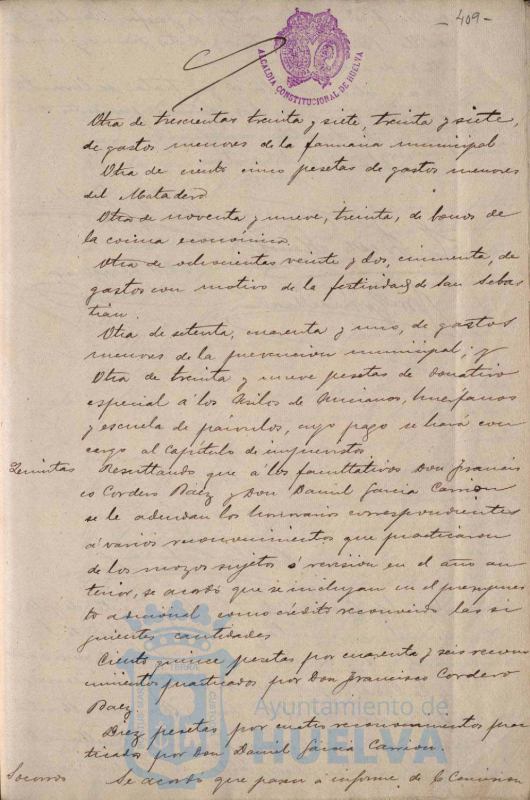 - 409 -
ALCALDIA CONSTITUCIONAL DE HUELVA
Otra de trescientas treinta y siete, treinta y siete,
de gastos menores de la farmacia municipal
Otra de ciento cinco pesetas de gastos menores
del Matadero
Otra de noventa y nueve, treinta, de bonos de
la cocina económica.
Otra de ochocientas veinte y dos, cincuenta, de
gastos con motivo de la festividad de San Sebas
tián.
Otra de setenta, cuarenta y uno, de gastos
menores de la prevencion municipal; y
Otra de treinta y nueve pesetas de donativo
especial á los Asilos de Ancianos, huérfanos
y escuela de párvulos, cuyo pago se hará con
cargo al Capítulo de imprevistos
Resultando que á los facultativos Don Francis
co Cordero Paez y Don Daniel Garcia Carrion
se le adeudan los honorarios correspondientes
á varios reconocimientos que practicaron
de los mozos sujetos á revisión en el año an
terior, se acordó que se incluyan en el presupues
to adicional como crédito reconocido las si
guientes cantidades
Ciento quince pesetas por cuarenta y seis recono
cimientos practicados por Don Francisco Cordero
Paez.
Diez pesetas por cuatro reconocimientos prac
ticados por Don Daniel Garcia Carrion.
Socorros Se acordó que pasen á informe de la Comision
Ayuntamiento de
HUELVA